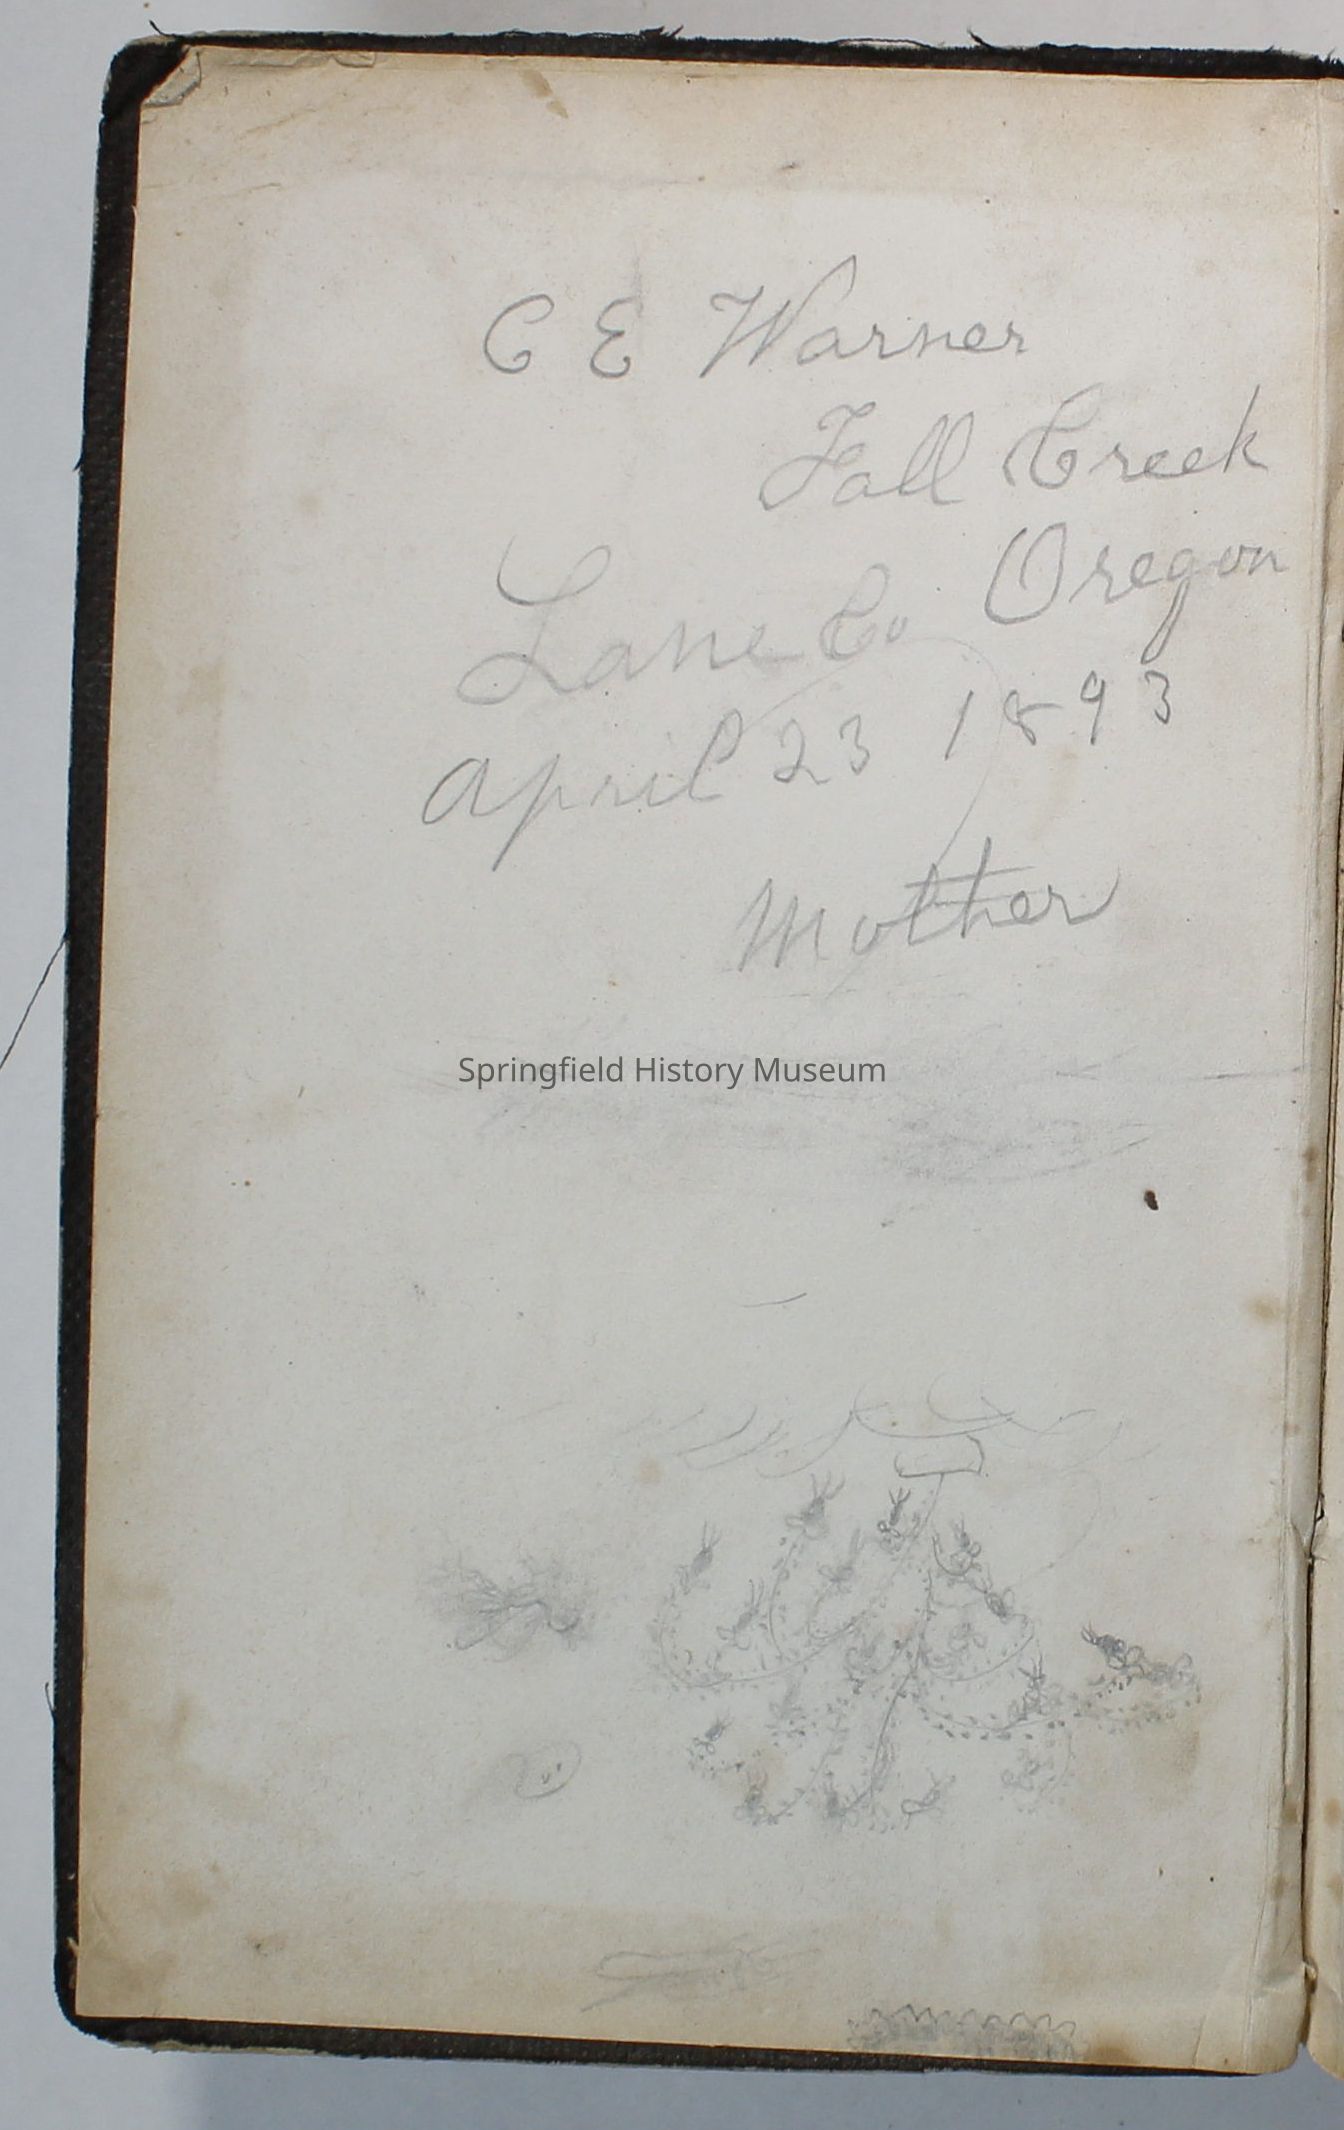 C E Warner
Fall Creek
Lane Co Oregon
April 23 1893
Mother
Springfield History Museum